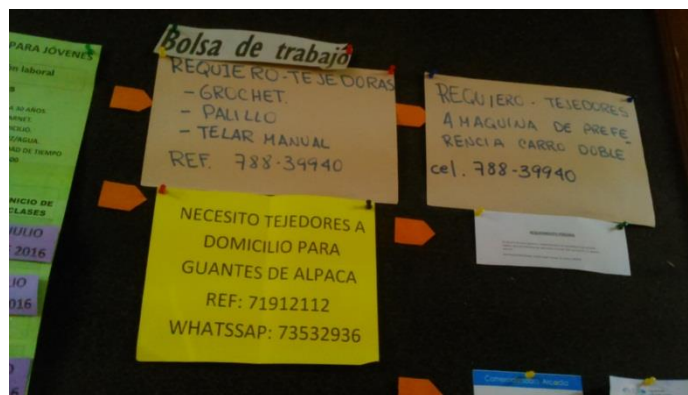 PARA JÓVENES
laboral
30 AÑOS.
DAD DE TIEMPO
INICIO DE
CLASES
JULIO
2016
016
Bolsa de trabajo
REQUIERO-TEJEDORAS
- GROCHET.
- PALILLO
- TELAR MANUAL
REF. 788-39940
REQUIERO - TEJEDORES
A MAQUINA DE PREFE_
RENCIA CARRO DOBLE
cel. 788-39940
NECESITO TEJEDORES A
DOMICILIO PARA
GUANTES DE ALPACA
REF: 71912112
WHATSSAP: 73532936